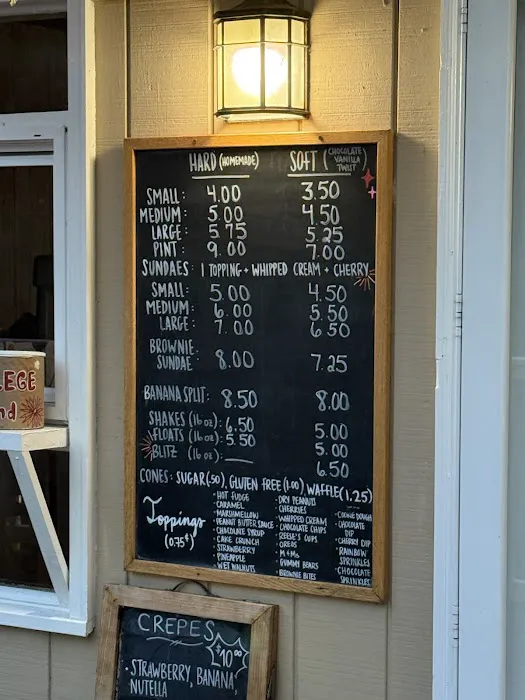 HARD (HOMEMADE) SOFT (CHOCOLATE VANILLA TWIST)
SMALL: 4.00 3.50
MEDIUM: 5.00 4.50
LARGE: 5.75 5.25
PINT: 9.00 7.00
SUNDAES: 1 TOPPING + WHIPPED CREAM + CHERRY
SMALL: 5.00 4.50
MEDIUM: 6.00 5.50
LARGE: 7.00 6.50
BROWNIE SUNDAE: 8.00 7.25
BANANA SPLIT: 8.50 8.00
SHAKES (16 OZ): 6.50 5.00
FLOATS (16 OZ): 5.50 5.00
BLITZ (16 OZ): — 6.50
CONES: SUGAR(.50), GLUTEN FREE (1.00), WAFFLE(1.25)
Toppings
(0.75¢)
• HOT FUDGE
CARAMEL
• MARSHMELLOW
• PEANUT BUTTER SAUCE
• CHOCOLATE SYRUP
• CAKE CRUNCH
• STRAWBERRY
• PINEAPPLE
• WET WALNUTS
• DRY PEANUTS
CHERRIES
• WHIPPED CREAM
• CHOCOLATE CHIPS
• REESE'S CUPS
• OREOS
• M&MS
• GUMMY BEARS
• BROWNIE BITES
• COOKIE DOUGH
• CHOCOLATE DIP
• CHERRY DIP
• RAINBOW SPRINKLES
• CHOCOLATE SPRINKLES
LEGE
nd
CREPES
$10.00
• STRAWBERRY, BANANA,
NUTELLA